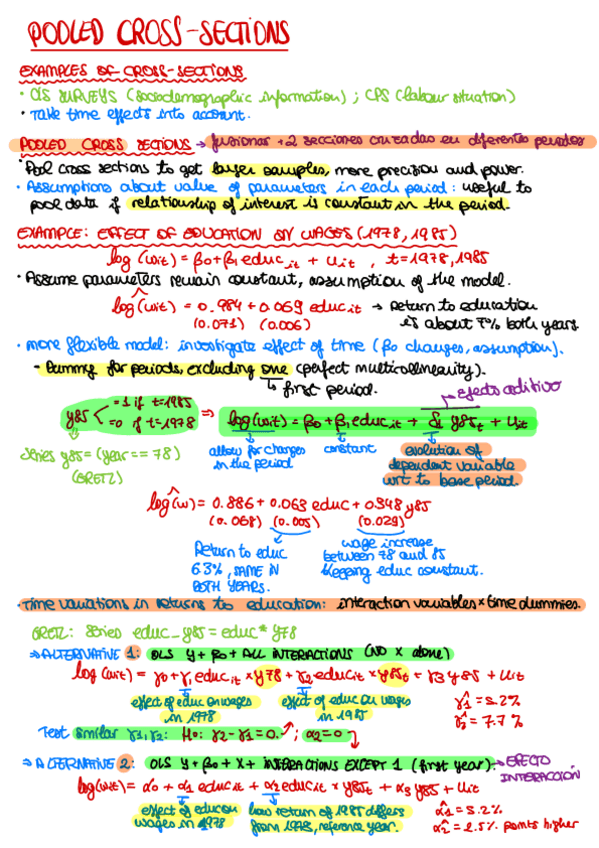 POOLED CROSS-SECTIONS
EXAMPLES OF CROSS-SECTIONS
· CIS SURVEYS (sociodemographic information) ; CPS (labour situation)
· Take time effects into account.
POOLED CROSS SECTIONS → fusionar +2 secciones cruzadas en diferentes periodos
· Pool cross sections to get larger samples, more precision and power.
· Assumptions about value of parameters in each period: useful to
pool data if relationship of interest is constant in the period.
EXAMPLE: EFFECT OF EDUCATION ON WAGES (1978, 1985)
log (wit) = β0 + β1 educit + uit , t=1978, 1985
· Assume parameters remain constant, assumption of the model.
log(wit) = 0.984 + 0.069 educit → Return to education
(0.071) (0.006) is about 7% both years
· more flexible model: investigate effect of time (β0 changes, assumption).
- Dummy for periods, excluding one (perfect multicollinearity).
↳ first period.
efecto aditivo
y85 < =1 if t=1985
=0 if t=1978 ⇒ log(wit) = β0 + β1 educit + δ1 y85t + uit
series y85 = (year == 78)
(GRETL)
allow for changes in the period
constant
evolution of dependent variable wrt to base period.
log(w) = 0.886 + 0.063 educ + 0.348 y85
(0.068) (0.005) (0.029)
Return to educ 6.3%, SAME IN BOTH YEARS.
wage increase between 78 and 85 keeping educ constant.
· Time variations in returns to education: interaction variables × time dummies.
GRETL: series educ_y85 = educ * y78
⇒ ALTERNATIVE 1: OLS y + β0 + ALL INTERACTIONS (NO X alone)
log (wit) = γ0 + γ1 educit × y78 + γ2 educit × y85t = γ3 y85 + uit
effect of educ on wages in 1978
effect of educ on wages in 1985
γ1 = 5.2%
γ2 = 7.7%
Test similar γ1, γ2: H0: γ2 - γ1 = 0. ; α2 = 0
⇒ ALTERNATIVE 2: OLS y + β0 + X + INTERACTIONS EXCEPT 1 (first year). → EFECTO INTERACCIÓN
log(wit) = α0 + α1 educit + α2 educit × y85t + α3 y85 + uit
effect of educ on wages in 1978
how return of 1985 differs from 1978, reference year.
α1 = 5.2%
α2 = 2.5% points higher